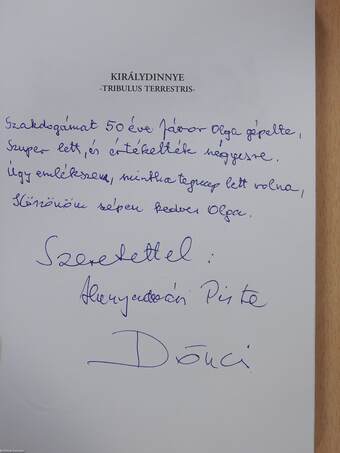 KIRÁLYDINNYE
-TRIBULUS TERRESTRIS-
Szakdogámat 50 éve Jávor Olga gépelte,
Szuper lett, és értékelték négyesre.
Úgy emlékszem, mintha tegnap lett volna,
Köszönöm szépen kedves Olga.
Szeretettel:
Pista
Dönci